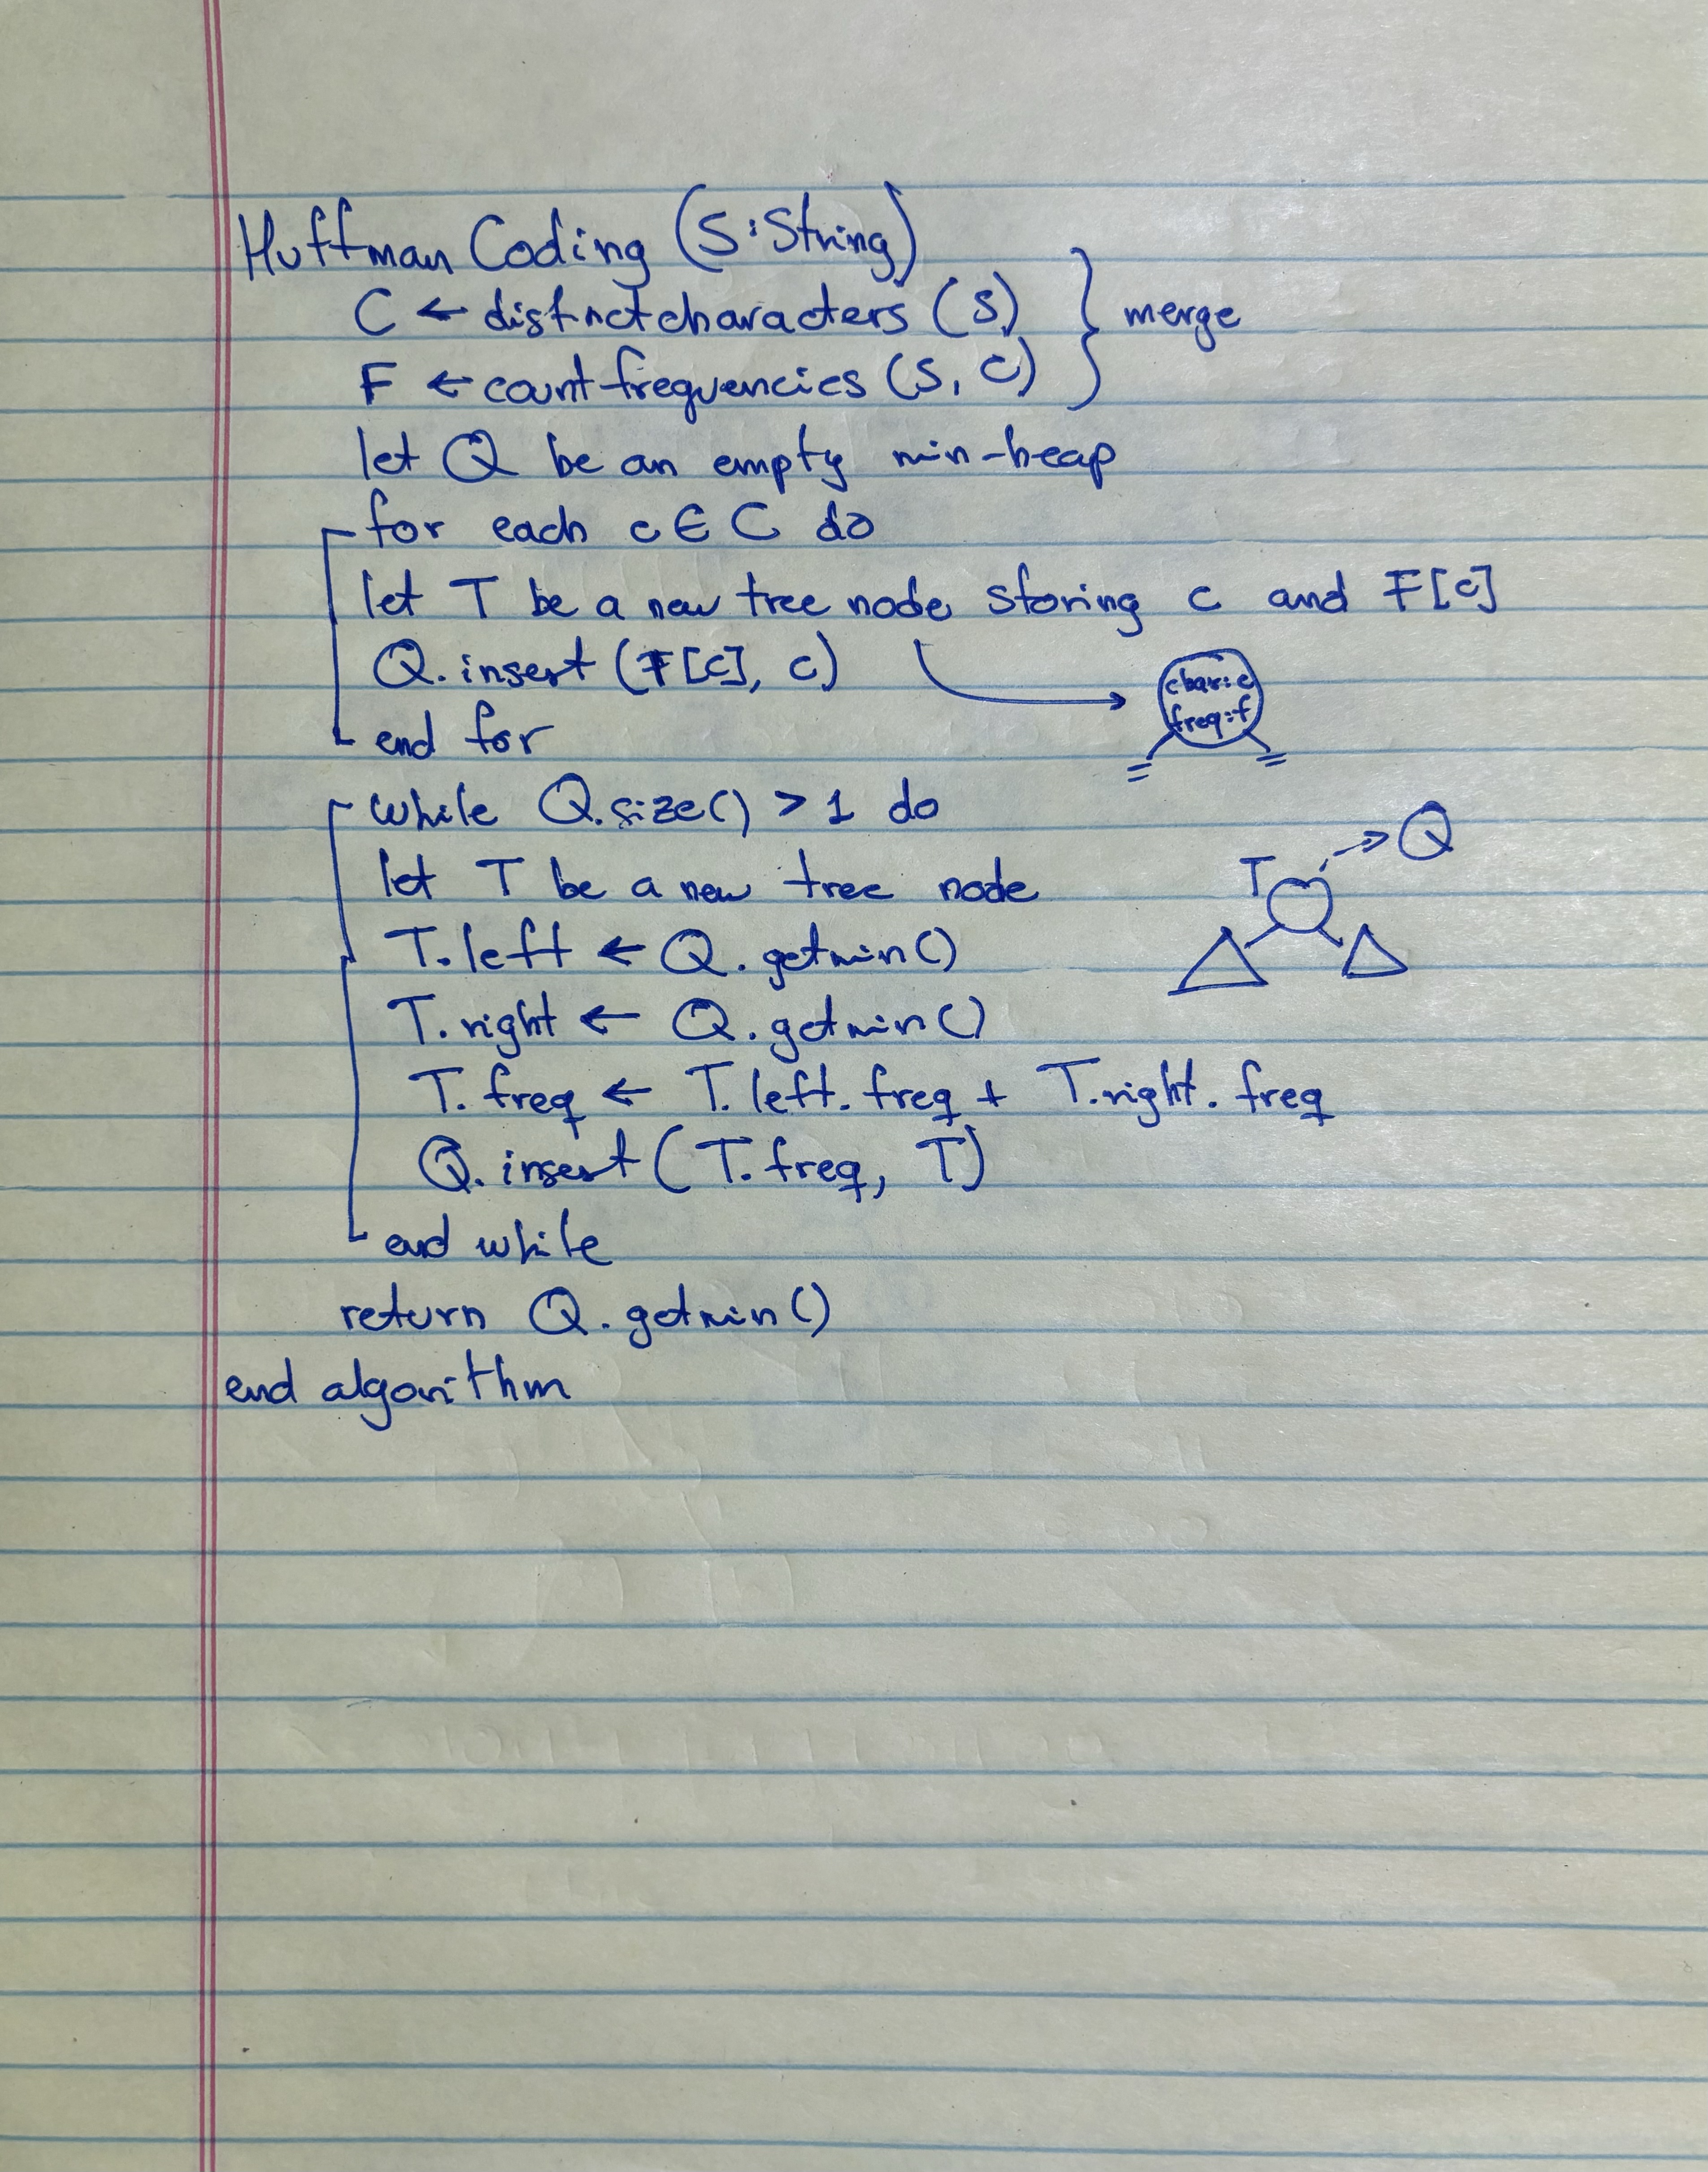 Huffman Coding (S:String)
C ← distinctcharacters (S)
F ← countfrequencies (S, C)
} merge
let Q be an empty min-heap
for each c ∈ C do
let T be a new tree node storing c and F[c]
Q.insert (F[c], c)
char:c
freq:f
end for
while Q.size() > 1 do
let T be a new tree node
T → Q
T.left ← Q.getmin()
T.right ← Q.getmin()
T.freq ← T.left.freq + T.right.freq
Q.insert (T.freq, T)
end while
return Q.getmin()
end algorithm